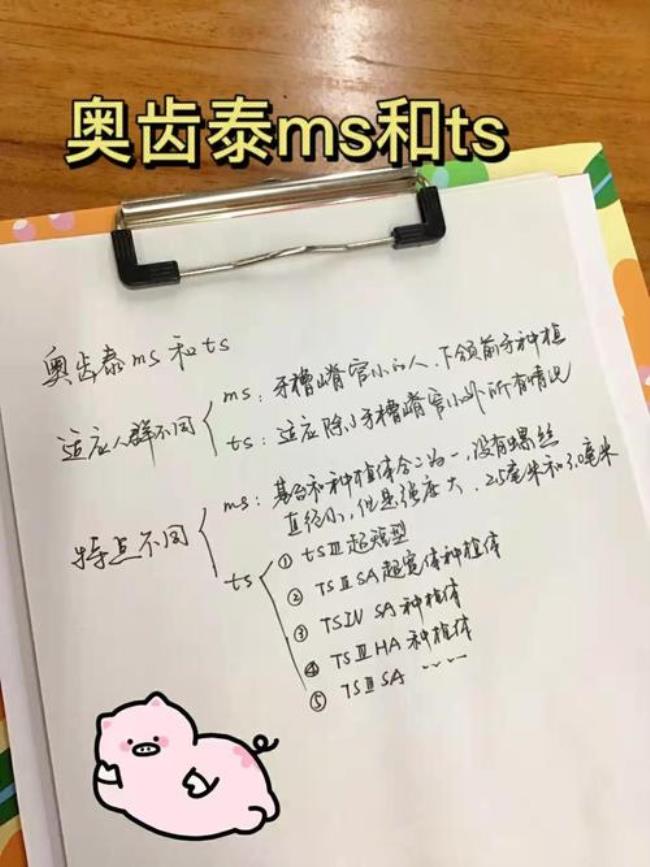 奥齿泰ms和ts
奥齿泰ms和ts
适应人群不同
ms: 牙槽嵴窄小的人、下颌前牙种植
ts: 适应除了牙槽嵴窄小外所有情况
特点不同
ms: 基台和种植体合二为一,没有螺丝
直径小,但是强度大. 2.5毫米和3.0毫米
ts
① TSⅢ超短型
② TSⅢSA超宽体种植体
③ TSIV SA 种植体
④ TSⅢHA 种植体
⑤ TSⅢSA ----